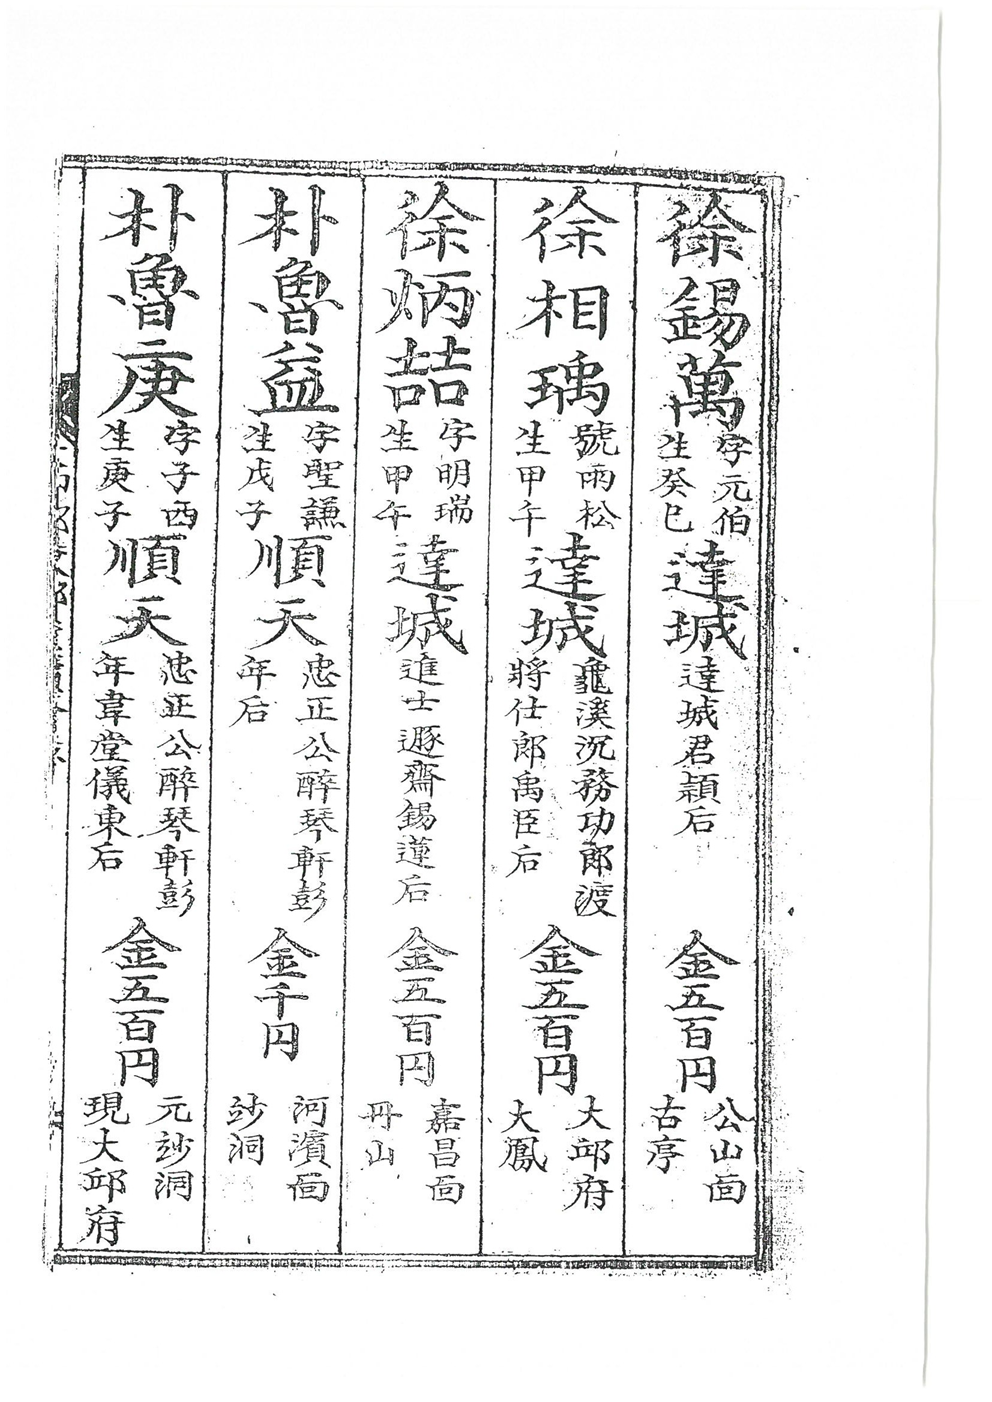 徐錫萬 字元伯 生癸巳 達城 達城君穎后 金五百円 公山面 古亭
徐相瑀 號雨松 生甲午 達城 龜溪沉務功郎渡 將仕郎禹臣后 金五百円 大邱府 大鳳
徐炳喆 字明瑞 生甲午 達城 進士遯齋錫蓮后 金五百円 嘉昌面 冊山
朴魯益 字聖謙 生戊子 順天 忠正公醉琴軒彭 年后 金千円 河濱面 竗洞
朴魯庚 字子西 生庚子 順天 忠正公醉琴軒彭 年韋堂儀東后 金五百円 元竗洞 現大邱府